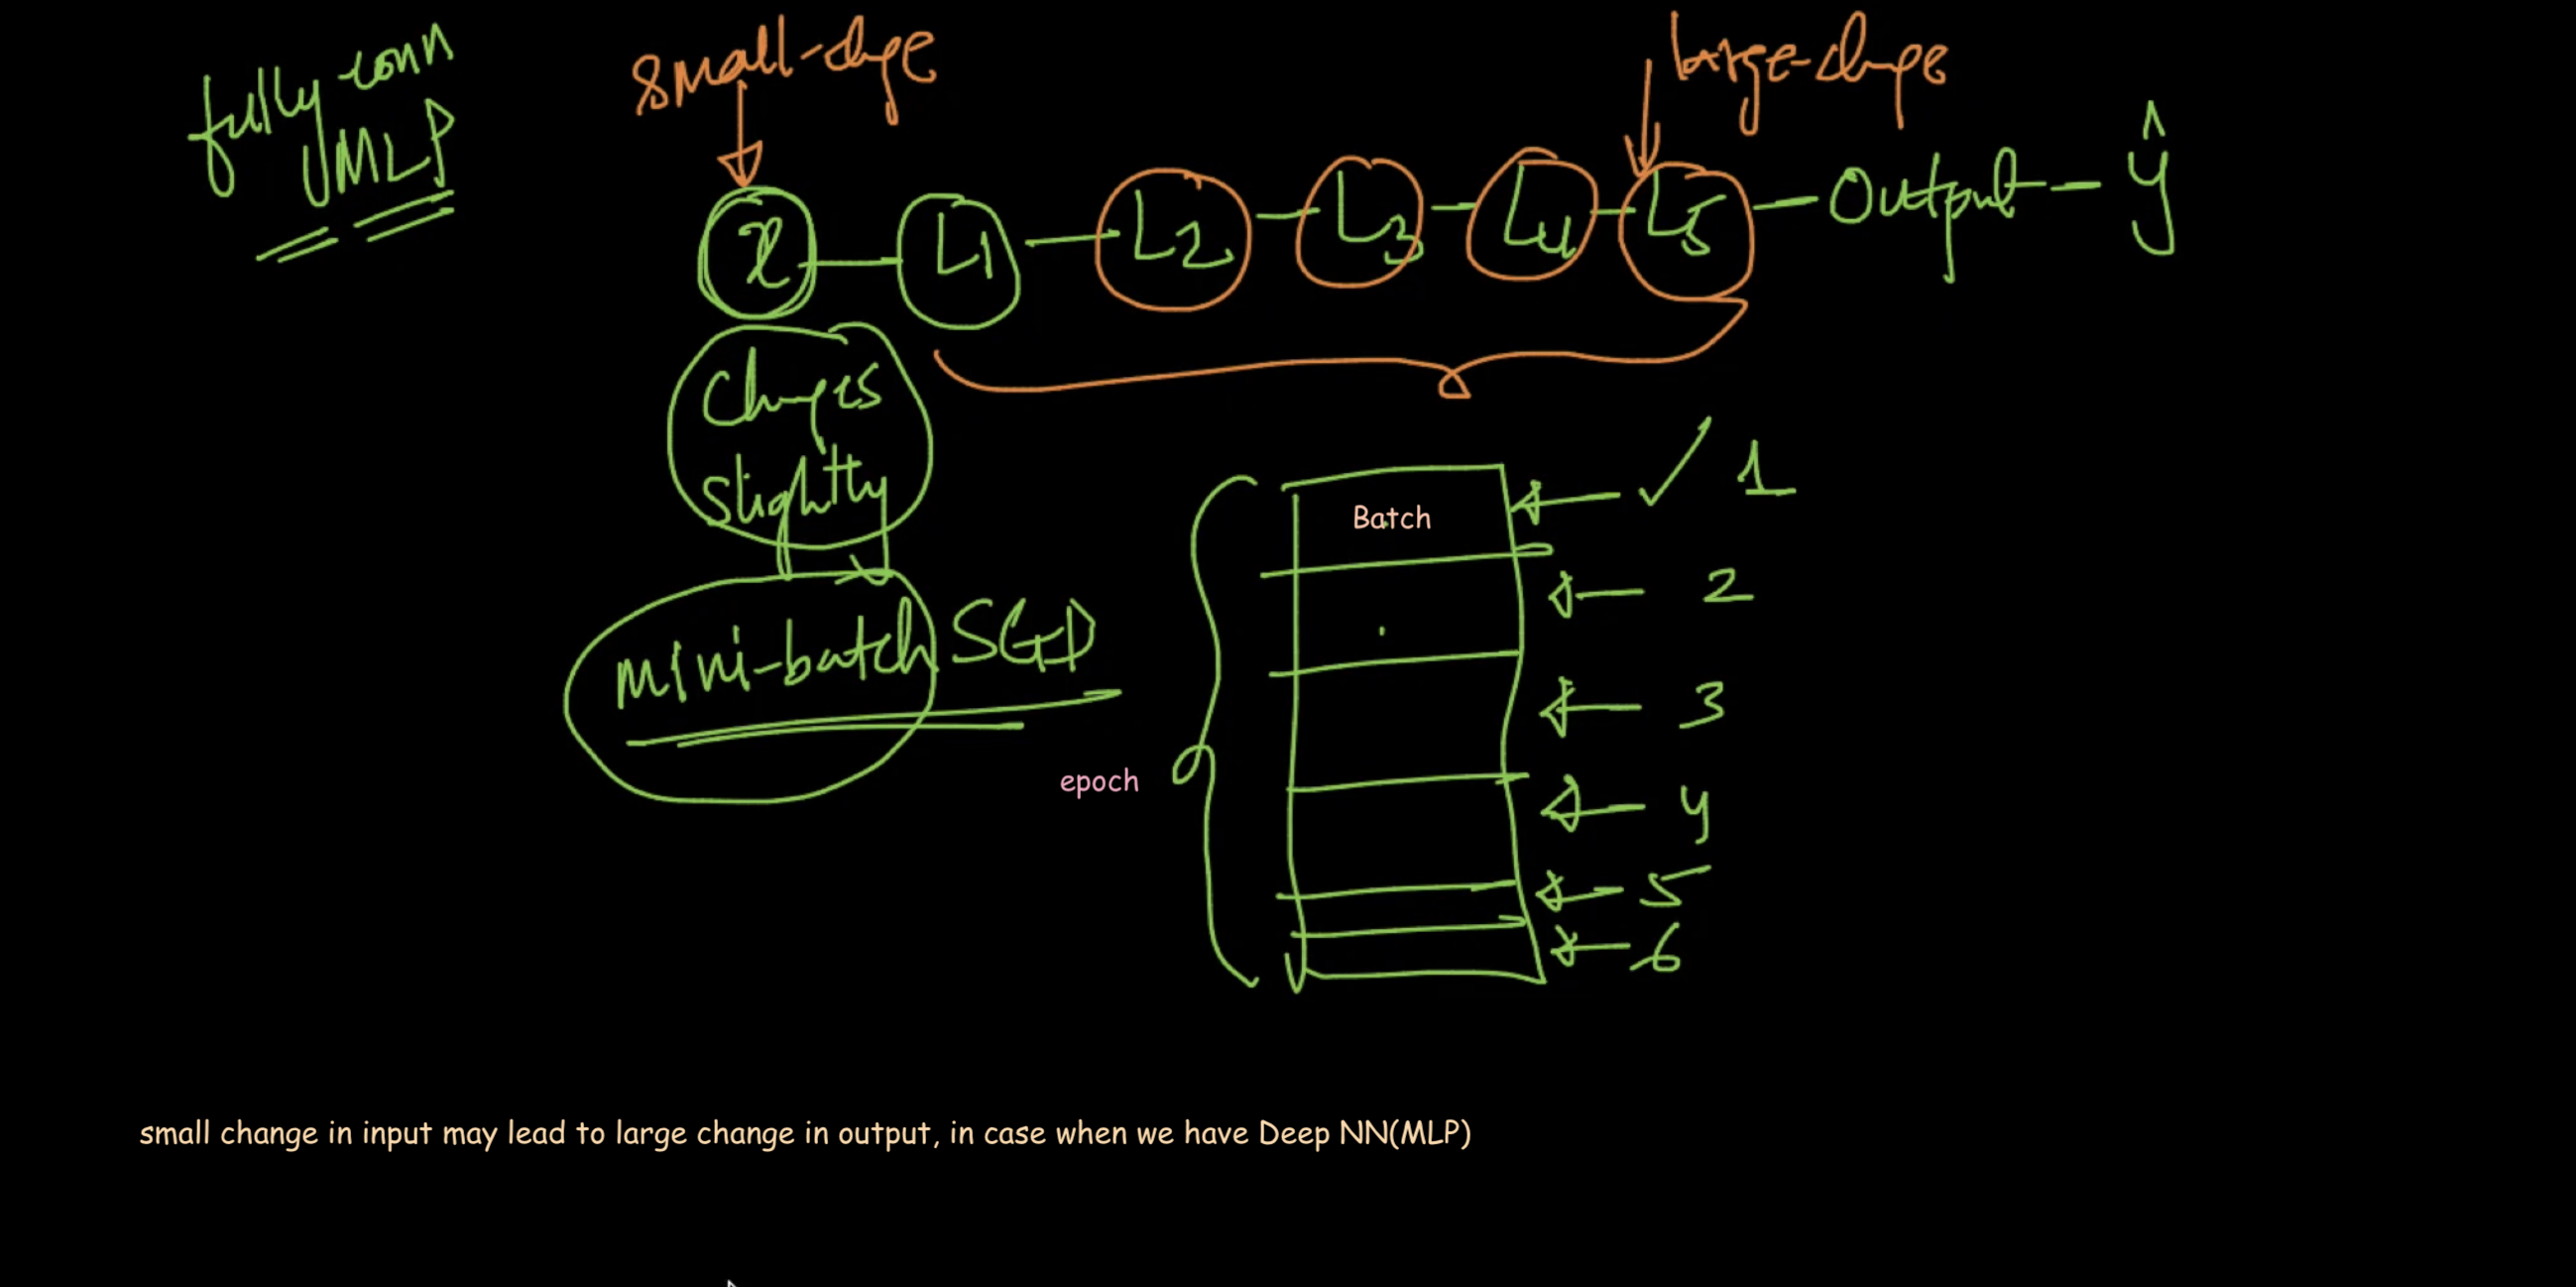 fully-conn
MLP
small-chge
large-chnge
x — L1 — L2 — L3 — L4 — L5 — Output — ŷ
Chnges
slightly
mini-batch SGD
epoch
Batch
1
2
3
4
5
6
small change in input may lead to large change in output, in case when we have Deep NN(MLP)